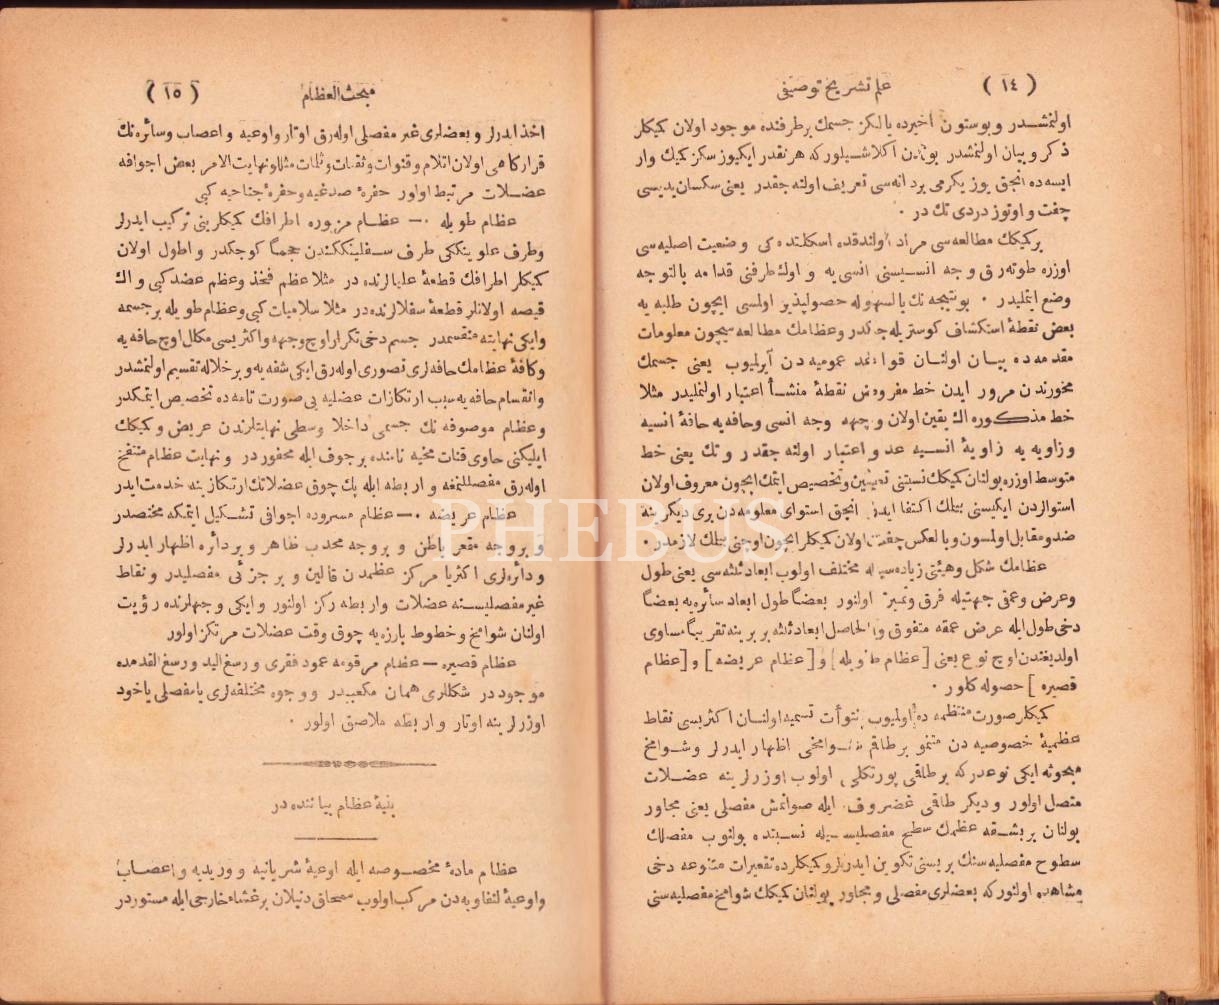 ( ١٤ ) علم تشریح توصیفی
اولنمشدر و بوستون اخیرده یالکز جسمك برطرفنده موجود اولان کمیکلر
ذکر و بیان اولنمشدر بوندن اکلاشیلور که هر نقدر ایکیوز سکز کمیك وار
ایسه ده انجق یوز یکرمی بر دانه سی تعریف اولنه جقدر یعنی سکسان یدیسی
چفت و اوتوز دردی تك در ٠
برکمیکك مطالعه سی مراد اولندقده اسکلتده کی وضعیت اصلیه سی
اوزره طوته رق وجه انسیسنی انسی یه و اوك طرفنی قدامه بالتوجه
وضع ایتملیدر ٠ بو نتیجه نك بالسهوله حصولپذیر اولمسی ایچون طلبه یه
بعض نقطهٔ استکشاف کوستریله جکدر وعظامك مطالعه سیچون معلومات
مقدمه ده بیان اولنان قواعد عمومیه دن آیرلمیوب یعنی جسمك
محورندن مرور ایدن خط مفروض نقطهٔ منشأ اعتبار اولنملیدر مثلا
خط مذکوره اك یقین اولان وجهه وجه انسی وحافه یه حافهٔ انسیه
و زاویه یه زاویهٔ انسیه عد و اعتبار اولنه جقدر و تك یعنی خط
متوسط اوزره بولنان کمیکك نسبتنی تعیین وتخصیص ایتمك ایچون معروف اولان
استوالردن ایکیسنی بتلك اکتفا ایدر انجق استوای معلومه دن بری دیکرینه
ضد ومقابل اولمسون و بالعکس چفت اولان کمیکلر ایچون اوچنی بتلك لازمدر ٠
عظامك شکل وهیئتی زیاده سیله مختلف اولوب ابعاد ثلثه سی یعنی طول
وعرض وعمق جهتیله فرق وتمییز اولنور بعضاً طول ابعاد سائره یه بعضاً
دخی طول ایله عرض عمقه متفوق والحاصل ابعاد ثلثه بر برینه تقریباً مساوی
اولدیغندن اوچ نوع یعنی [ عظام طویله ] و [ عظام عریضه ] و [ عظام
قصیره ] حصوله کلور ٠
کمیکلر صورت منتظمه ده اولمیوب نتوأت تسمیه اولنان اکثریسی نقاط
عظمیهٔ خصوصیه دن متنمو برطاقم شوامخی اظهار ایدرلر وشوامخ
مبحوثه ایکی نوعدر که بر طاقی پورتکلی اولوب اوزرلرینه عضلات
متصل اولور و دیکر طاقی غضروف ایله صوانمش مفصلی یعنی مجاور
بولنان بر بشقه عظمك سطح مفصلیسیله نسبتده بولنوب مفصلك
سطوح مفصلیه سنك بریسنی تکوین ایدرلر وکمیکلرده تقعیرات متنوعه دخی
مشاهده اولنور که بعضلری مفصلی و مجاور بولنان کمیکك شوامخ مفصلیه سنی
مبحث العظام ( ١٥ )
اخذ ایدرلر و بعضلری غیر مفصلی اوله رق اوتار واوعیه و اعصاب وسائره نك
قرارکاهی اولان اتلام و قنوات وثقبات وثلمات مثللو نهایت الامر بعض اجوافه
عضلات مرتبط اولور حفرهٔ صدغیه وحفرهٔ جناحیه کبی
عظام طویله ٠— عظام مزبوره اطرافك کمیکلرینی ترکیب ایدرلر
وطرف علوینککی طرف سفلینککندن حجماً کوچکدر و اطول اولان
کمیکلر اطرافك قطعهٔ علیالرنده در مثلا عظم فخذ وعظم عضد کبی و اك
قیصه اولانلر قطعهٔ سفلالرنده در مثلا سلامیات کبی وعظام طویله بر جسمه
وایکی نهایته منقسمدر جسم دخی تکرار اوچ وجهه واکثریسی مکلل اوچ حافه یه
وکافهٔ عظامك حافه لری تصوری اوله رق ایکی شفه یه و بر خلاله تقسیم اولنمشدر
وانقسام حافه یه سبب ارتکازات عضلیه یی صورت تامه ده تخصیص ایتمکدر
وعظام موصوفه نك جسمی داخلا وسطی نهایتلرندن عریض و کمیکك
ایلیکنی حاوی قنات مخیه نامنده بر جوف ایله محفوردر و نهایت عظام منتفخ
اوله رق مفصللنمغه و اربطه ایله پك چوق عضلاتك ارتکازینه خدمت ایدر
عظام عریضه ٠— عظام مسروده اجوافی تشکیل ایتمکه مختصدر
و بر وجه مقعر باطن و بر وجه محدب ظاهر و بر دائره اظهار ایدرلر
و دائره لری اکثریا مرکز عظمدن قالین و بر جزئی مفصلیدر ونقاط
غیر مفصلیسنه عضلات واربطه رکز اولنور و ایکی وجهلرنده رؤیت
اولنان شوامخ وخطوط بارزه یه چوق وقت عضلات مرتکز اولور
عظام قصیره — عظام مرقومه عمود فقری و رسغ الید و رسغ القدمده
موجود در شکللری همان مکعبدر و وجوه مختلفه لری یا مفصلی یاخود
اوزرلرینه اوتار و اربطه ملاصق اولور ٠
بنیهٔ عظام بیاننده در
عظام مادهٔ مخصوصه ایله اوعیهٔ شریانیه و وریدیه و اعصاب
واوعیهٔ لنفاویه دن مرکب اولوب سمحاق دنیلان بر غشاء خارجی ایله مستوردر
PHEBUS